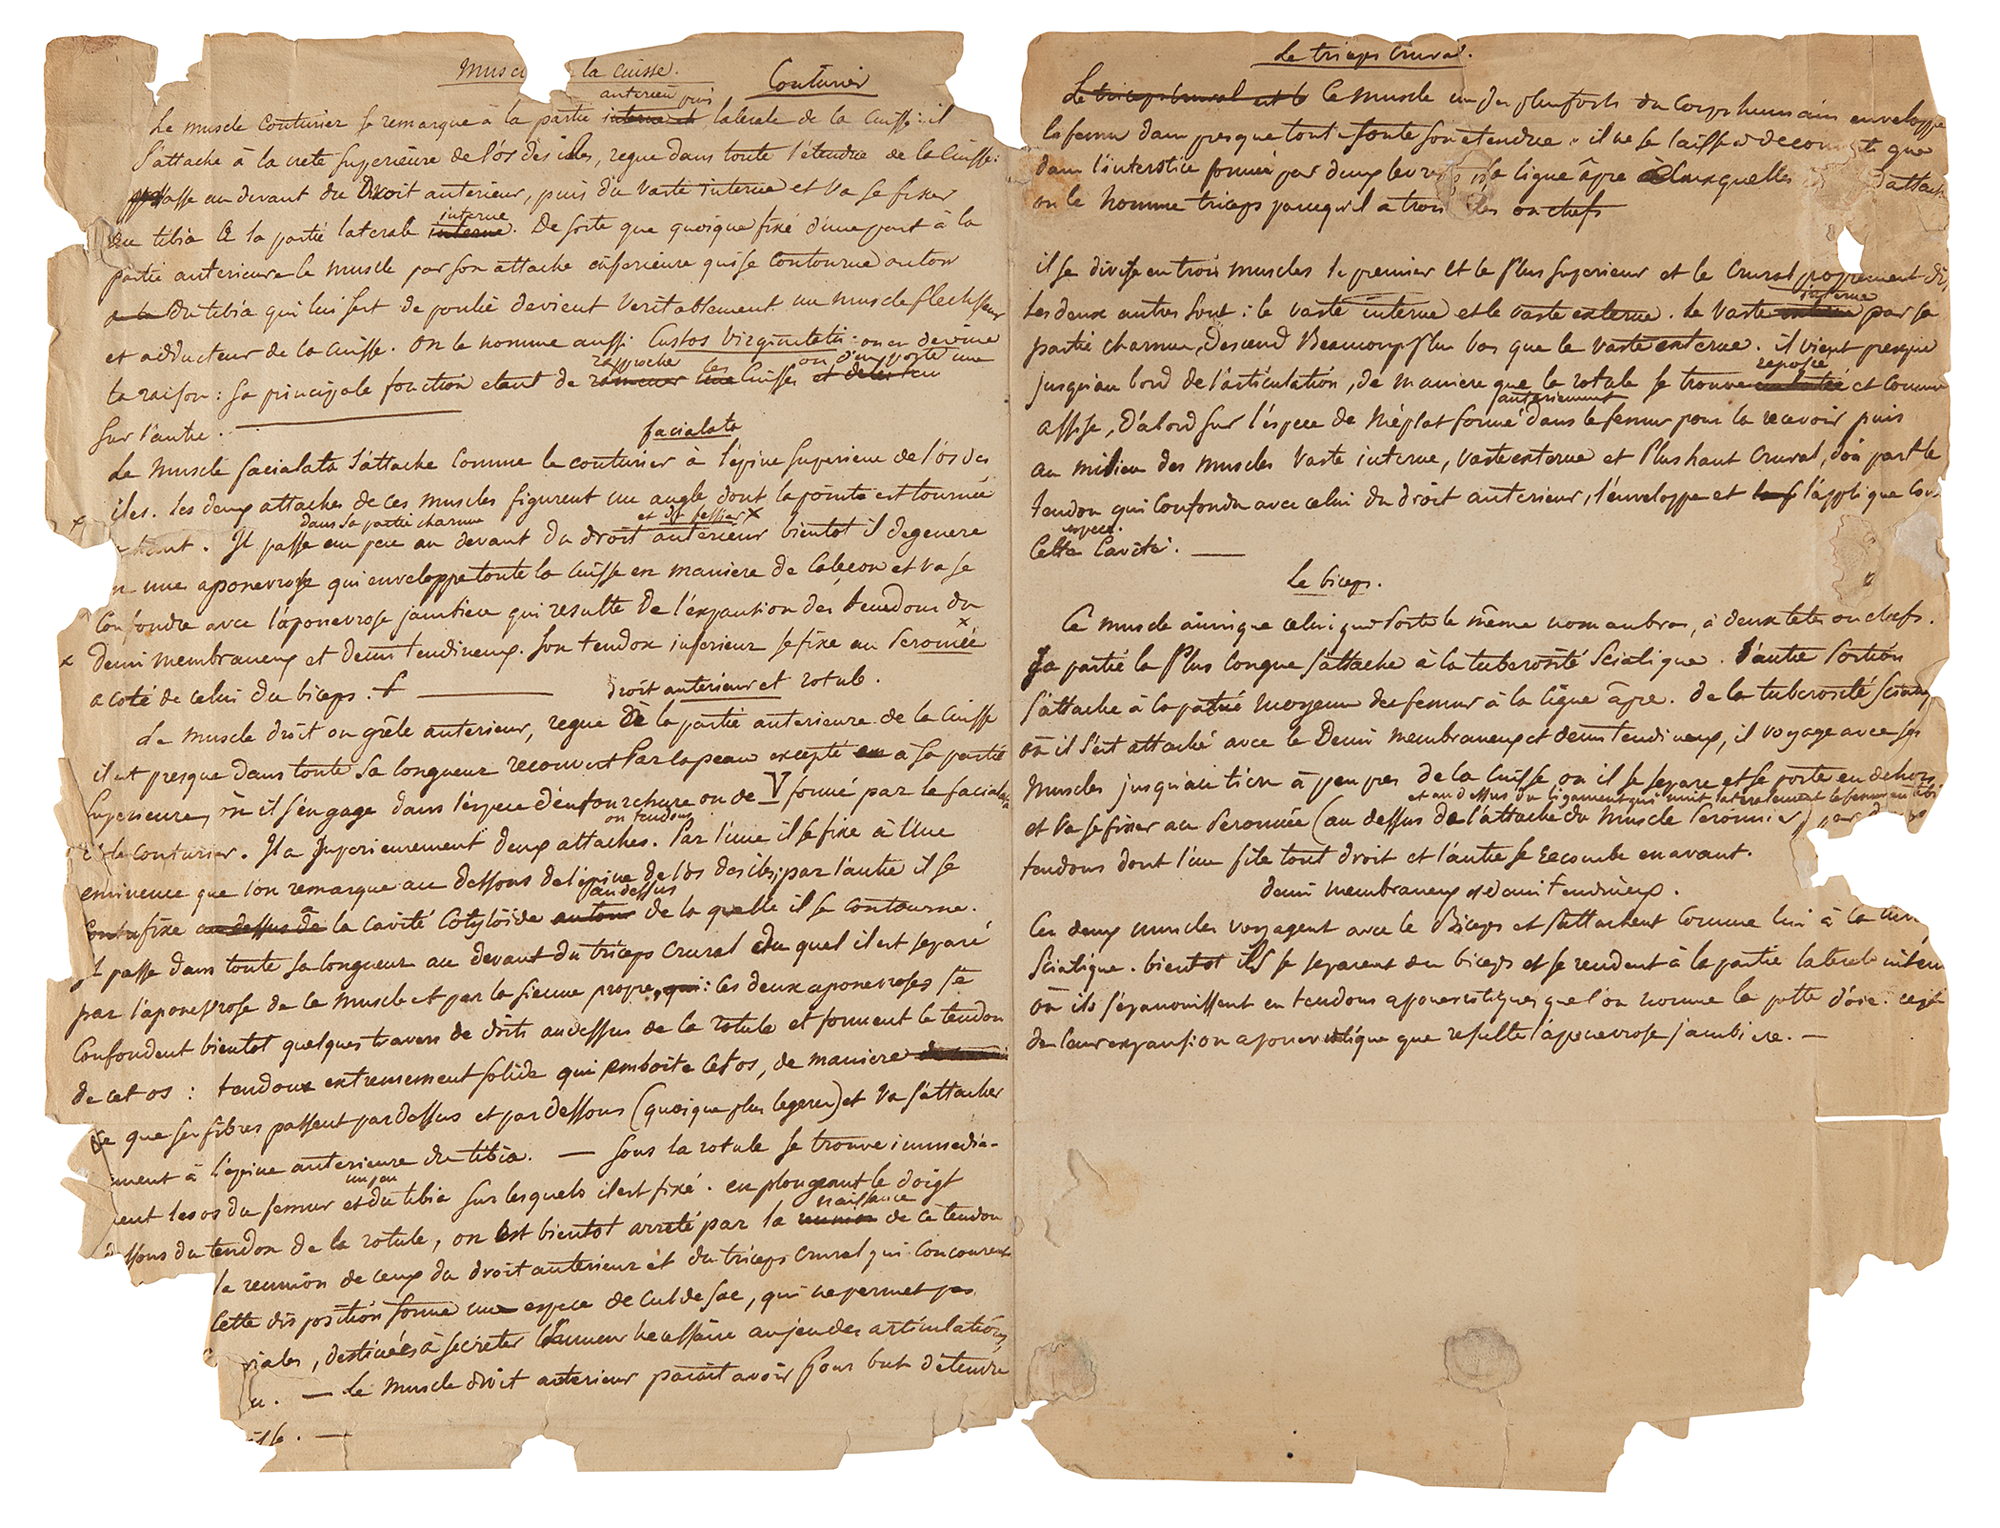 Musc la Cuisse.
Couturier
anterieu puis
Le muscle Couturier se remarque à la partie interne et laterale de la Cuisse: il
s'attache à la crete superieure de l'os des iles, regne dans toute l'étendue de la Cuisse:
passe au devant du Droit anterieur, puis du vaste interne et va se fixer
interne
au tibia à la partie laterale interne. De sorte que quoique fixé d'une part à la
partie anterieure le muscle par son attache inferieure qui se contourne autour
du tibia qui lui sert de poulie devient veritablement un muscle flechisseur
et adducteur de la Cuisse. On le nomme aussi Custos Virginitatis: on en devine
rapproche les ou d'en porte une
la raison: sa principale fonction etant de ramener une Cuisse
sur l'autre.
facialata
Le Muscle facialata s'attache Comme le couturier à l'épine superieure de l'os des
iles. les deux attaches de ces muscles figurent un angle dont la pointe est tournée
dans sa partie charnue et du fessier x
x hant. Il passe un peu au devant du droit anterieur bientot il degenere
une aponevrose qui enveloppe toute la Cuisse en maniere de Caleçon et va se
Confondre avec l'aponevrose jambiere qui resulte de l'expantion des tendons du
x
x demi membraneux et demi tendineux. Son tendon inferieur se fixe au Peronnée
a coté de celui du biceps.
droit anterieur et rotule.
Le muscle droit ou grêle anterieur, regne de la partie anterieure de la Cuisse
il est presque dans toute sa longueur recouvert Par la peau excepté a sa partie
superieure, où il s'engage dans l'espece d'enfourchure ou de V formé par le facialata
ou tendons
et le couturier. Il a superieurement deux attaches. Par l'une il se fixe à l'une
eminence que l'on remarque au dessous de l'épine de l'os des iles; par l'autre il se
au dessus
fixe au dessus de la cavité Cotyloïde autour de la quelle il se contourne.
Il passe dans toute sa longueur au devant du triceps crural du quel il est separé
par l'aponevrose de ce muscle et par la sienne propre, qui: ces deux aponevroses se
Confondent bientot quelques travers de doits au dessus de la rotule et forment le tendon
de cet os: tendon extremement solide qui emboite cet os, de maniere
ce que ses fibres passent par dessus et par dessous (quoique plus legeres) et va s'attacher
ment à l'épine anterieure du tibia. — Sous la rotule se trouve immedia-
un peu
ment les os du femur et du tibia sur lesquels il est fixé. en plongeant le doigt
naissance
dessous du tendon de la rotule, on est bientot arreté par la de ce tendon
la reunion de ceux du droit anterieur et du triceps crural qui concourent
Cette disposition forme une espece de cul de sac, qui ne permet pas
viales, destinées à secreter l'humeur necessaire au jeu des articulations,
— Le Muscle droit anterieur parait avoir pour but d'étendre
Le triceps Crural.
Le triceps Crural est le Ce Muscle un des plus forts du Corps humain enveloppe
le femur dans presque toute son etendue. il ne se laisse à que
dans l'interstice formée par deux levres la ligne âpre à laquelles attache
on le nomme triceps parcequ'il a trois ou chefs
il se divise en trois muscles le premier et le Plus superieur et le Crural proprement di,
interne
Les deux autres sont: le vaste interne et le vaste externe. Le vaste par sa
partie charnue, descend Beaucoup plus bas que le vaste externe. il vient presque
repose
jusqu'au bord de l'articulation, de maniere que la rotule se trouve et comme
anterieurement
assise, d'abord sur l'espece de Méplat formé dans le femur pour la recevoir puis
au milieu des muscles vaste interne, vaste externe et Plus haut Crural, d'où part le
tendon qui confondu avec celui du droit anterieur, l'enveloppe et l'applique
espece.
Cette Cavité.
Le biceps.
Ce muscle ainsi que celui qui Porte le même nom au bras, a deux tetes ou chefs.
Sa partie la Plus longue s'attache à la tuberosité Sciatique. L'autre Portion
s'attache à la partie moyenne du femur à la ligne âpre. De la tuberosité Sciatiq
où il s'est attaché avec le Demi membraneux et demi tendineux, il voyage avec ses
Muscles jusqu'au tiers à peu pres de la Cuisse ou il se separe et se porte en dehors
et au dessus du ligament qui unit lateralement le femur au tibi
et va se fixer au Peronnée (au dessus de l'attache du Muscle Peronnier) par
tendons dont l'un file tout droit et l'autre se recourbe en avant.
demi membraneux et demi tendineux.
Ces deux muscles voyagent avec le Biceps et s'attachent Comme lui à la
Sciatique. bientot ils se separent du biceps et se rendent à la partie laterale intern
où ils s'épanouissent en tendons aponevrotiques que l'on nomme la patte d'oie.
de leur expansion aponevrotique que resulte l'aponevrose jambiere. —